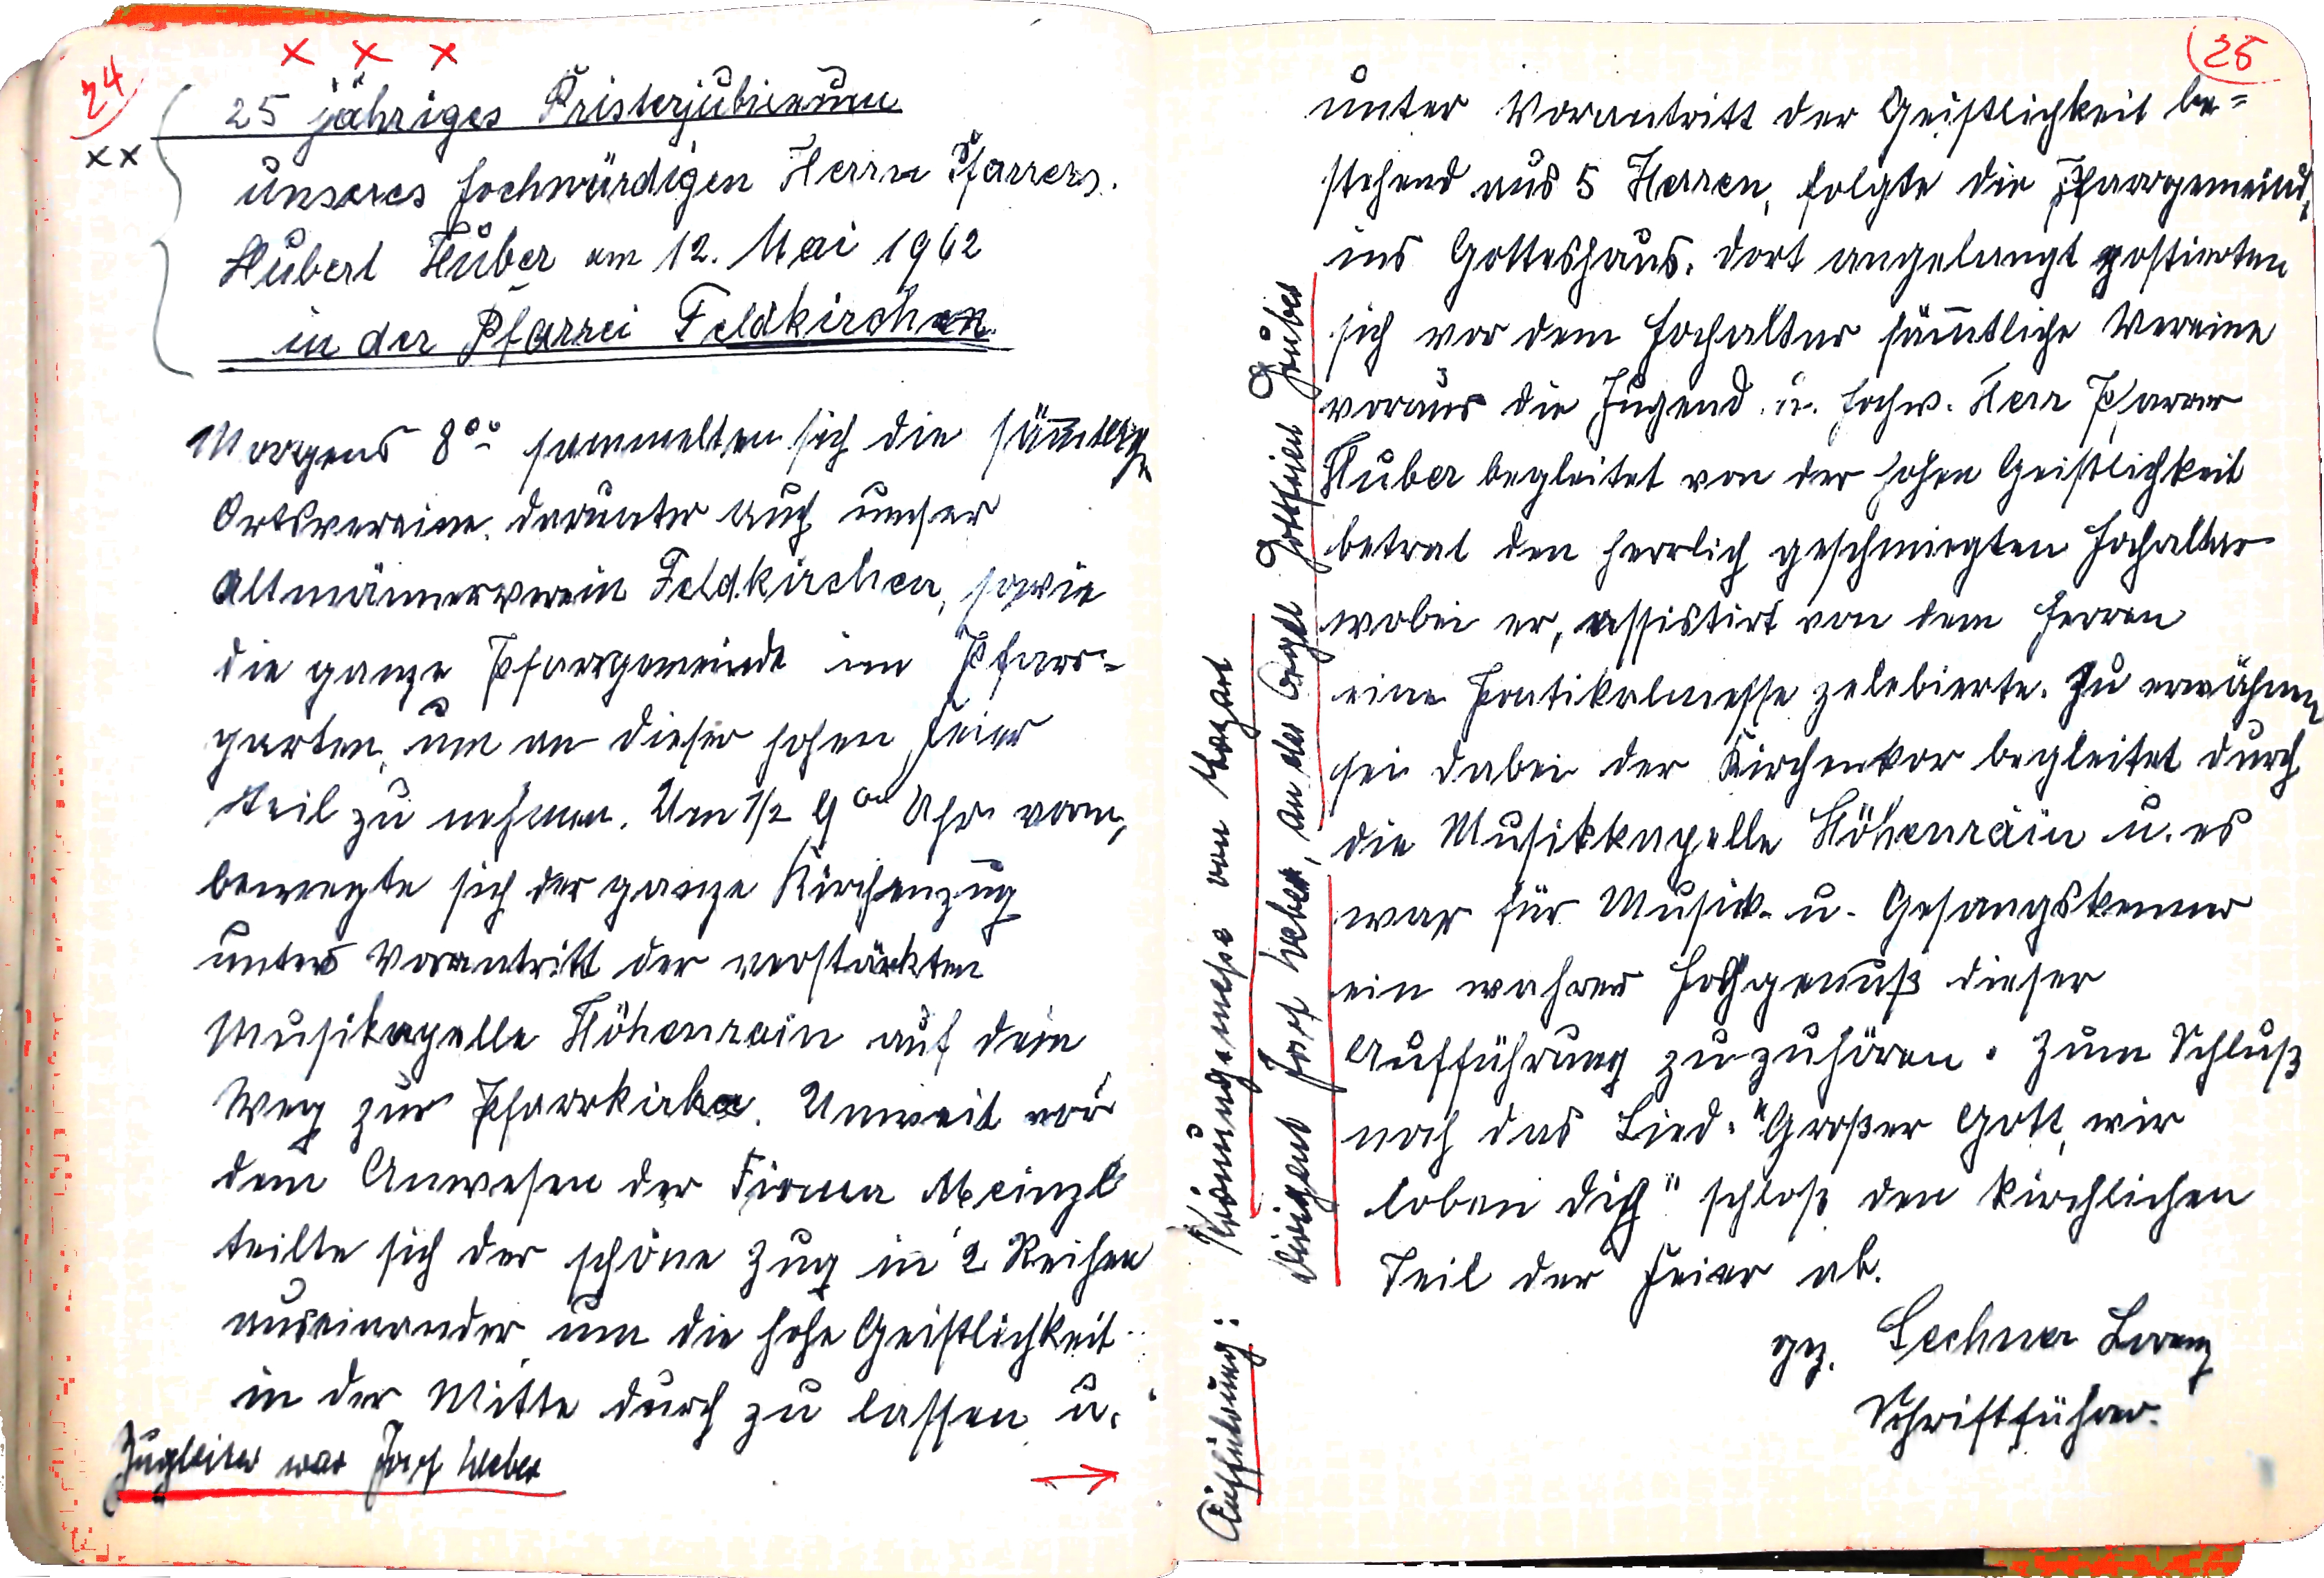 24
x x x
x x
25 jähriges Pristerjubileum
unseres hochwürdigen Herrn Pfarrers.
Hubert Huber am 12. Mai 1962
in der Pfarrei Feldkirchen.
Morgens 8⁰⁰ sammelten sich die sämtliche
Ortsvereine. darunter auch unser
Altmännerverein Feldkirchen, sowie
die ganze Pfarrgemeinde im Pfarr=
garten, um an dieser hohen Feier
teil zu nehmen. Um 1/2 9⁰⁰ Uhr vorm,
bewegte sich der ganze Kirchenzug
unter Vorantritt der verstärkten
Musikapelle Höhenrain auf dem
Weg zur Pfarrkirche. Unweit vor
dem Anwesen der Firma Meinzl
teilte sich der schöne Zug in 2 Reihen
auseinander um die hohe Geistlichkeit
in der Mitte durch zu lassen u.
Zugleiter war Josef Weber
→
25
unter Vorantritt der Geistlichkeit be=
stehend aus 5 Herren, folgte die Pfarrgemeinde
ins Gotteshaus. dort angelangt postierten
sich vor dem Hochaltar sämtliche Vereine
voraus die Jugend u. hochw. Herr Pfarrer
Huber begleitet von der hohen Geistlichkeit
betrat den herrlich geschmiegten Hochaltar
wobei er, assistirt von dem Herren
eine Pontikalmesse zelebierte. Zu erwähnen
sei dabei der Kirchenkor begleitet durch
die Musikkapelle Höhenrain u. es
war für Musik- u. Gesangskenner
ein wahrer Hochgenuß dieser
Aufführung zu zuhören. Zum Schluß
noch das Lied. "Großer Gott, wir
loben dich" schloß den kirchlichen
Teil der Feier ab.
gez. Lechner Lorenz
Schriftführer.
Aufführung: Krönungsmesse von Mozart
Dirigent Josef Weber, an der Orgel Gottfried Gruber